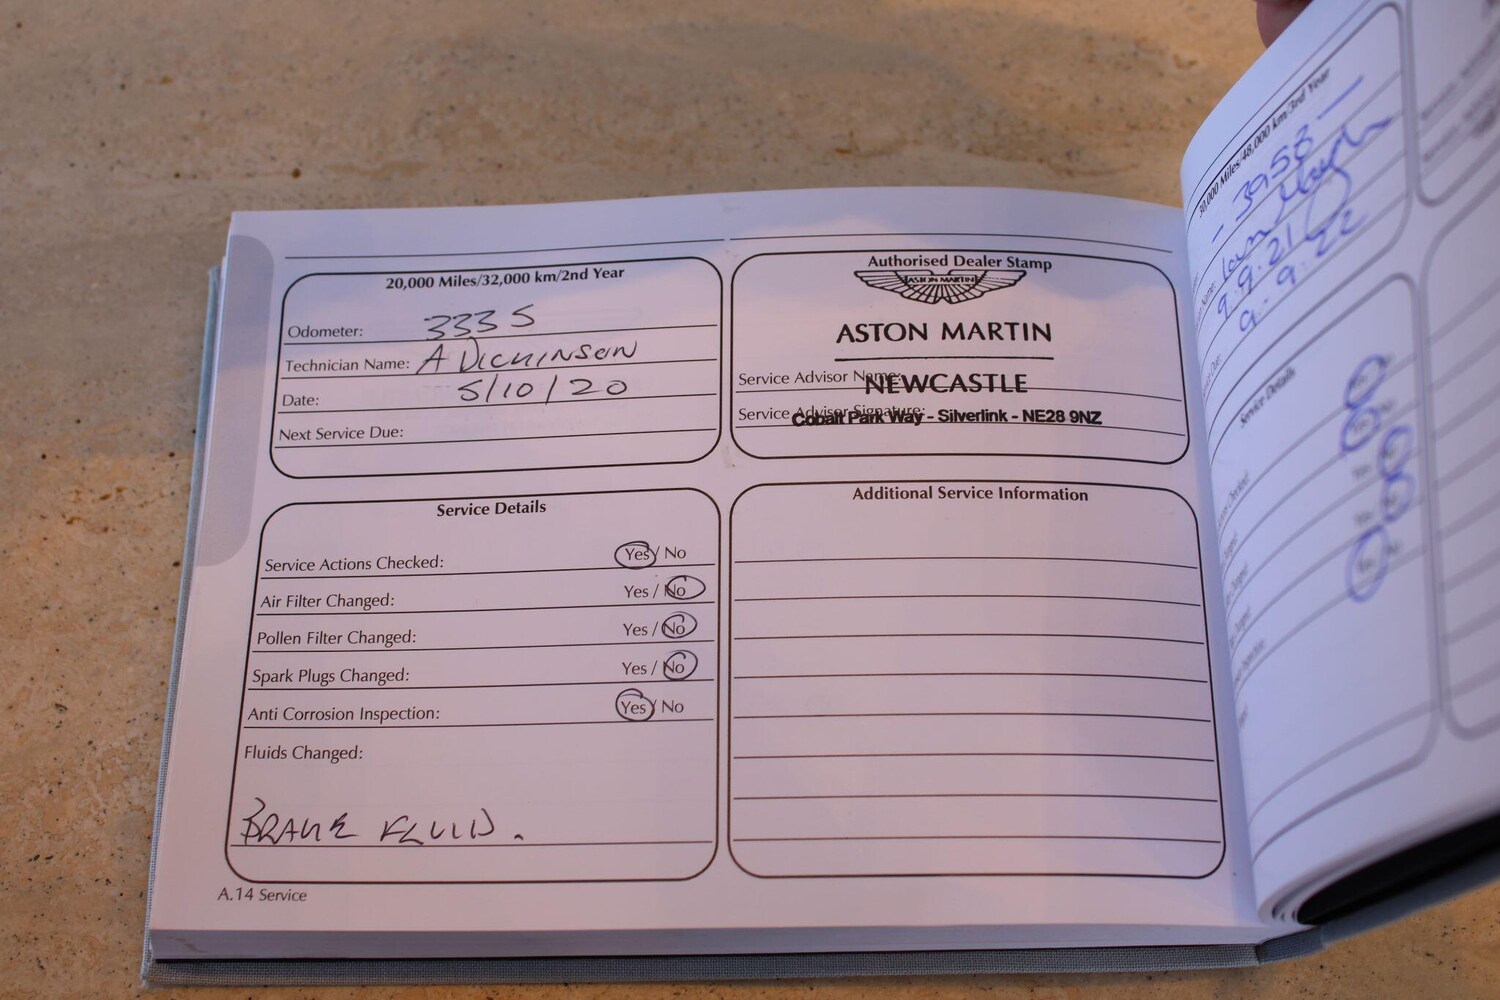 20,000 Miles/32,000 km/2nd Year
Odometer: 3335
Technician Name: A DICKINSON
Date: 5/10/20
Next Service Due:
Authorised Dealer Stamp
ASTON MARTIN
ASTON MARTIN
Service Advisor Name:
NEWCASTLE
Service Advisor Signature:
Cobalt Park Way - Silverlink - NE28 9NZ
Service Details
Service Actions Checked: Yes / No
Air Filter Changed: Yes / No
Pollen Filter Changed: Yes / No
Spark Plugs Changed: Yes / No
Anti Corrosion Inspection: Yes / No
Fluids Changed:
BRAKE FLUID.
Additional Service Information
A.14 Service
30,000 Miles/48,000 km/3rd Year
- 3958 -
9.9.21
9.9.22
Service Details